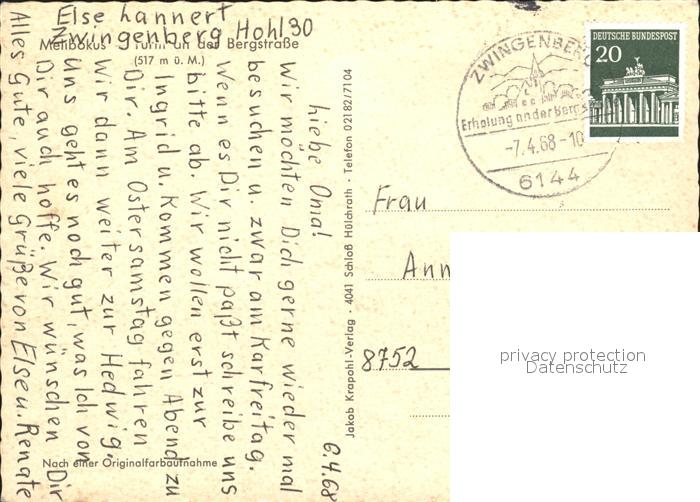 Else Lannert
Zwingenberg Hohl 30
Melibokus Turm an der Bergstraße
(517 m ü. M.)
6.4.68
Liebe Oma!
Wir möchten Dich gerne wieder mal
besuchen u. zwar am Karfreitag.
Wenn es Dir nicht paßt schreibe uns
bitte ab. Wir wollen erst zur
Ingrid u. Kommen gegen Abend zu
Dir. Am Ostersamstag fahren
Wir dann weiter zur Hedwig.
Uns geht es noch gut, was Ich von
Dir auch hoffe. Wir wünschen Dir
Alles Gute, viele Grüße von Else u. Renate
Nach einer Originalfarbaufnahme
Jakob Krapohl-Verlag · 4041 Schloß Hülchrath · Telefon 02182/7104
ZWINGENBERG
Erholung an der Bergs
-7.4.68-10
6144
DEUTSCHE BUNDESPOST
20
Frau
Ann
8752
privacy protection
Datenschutz